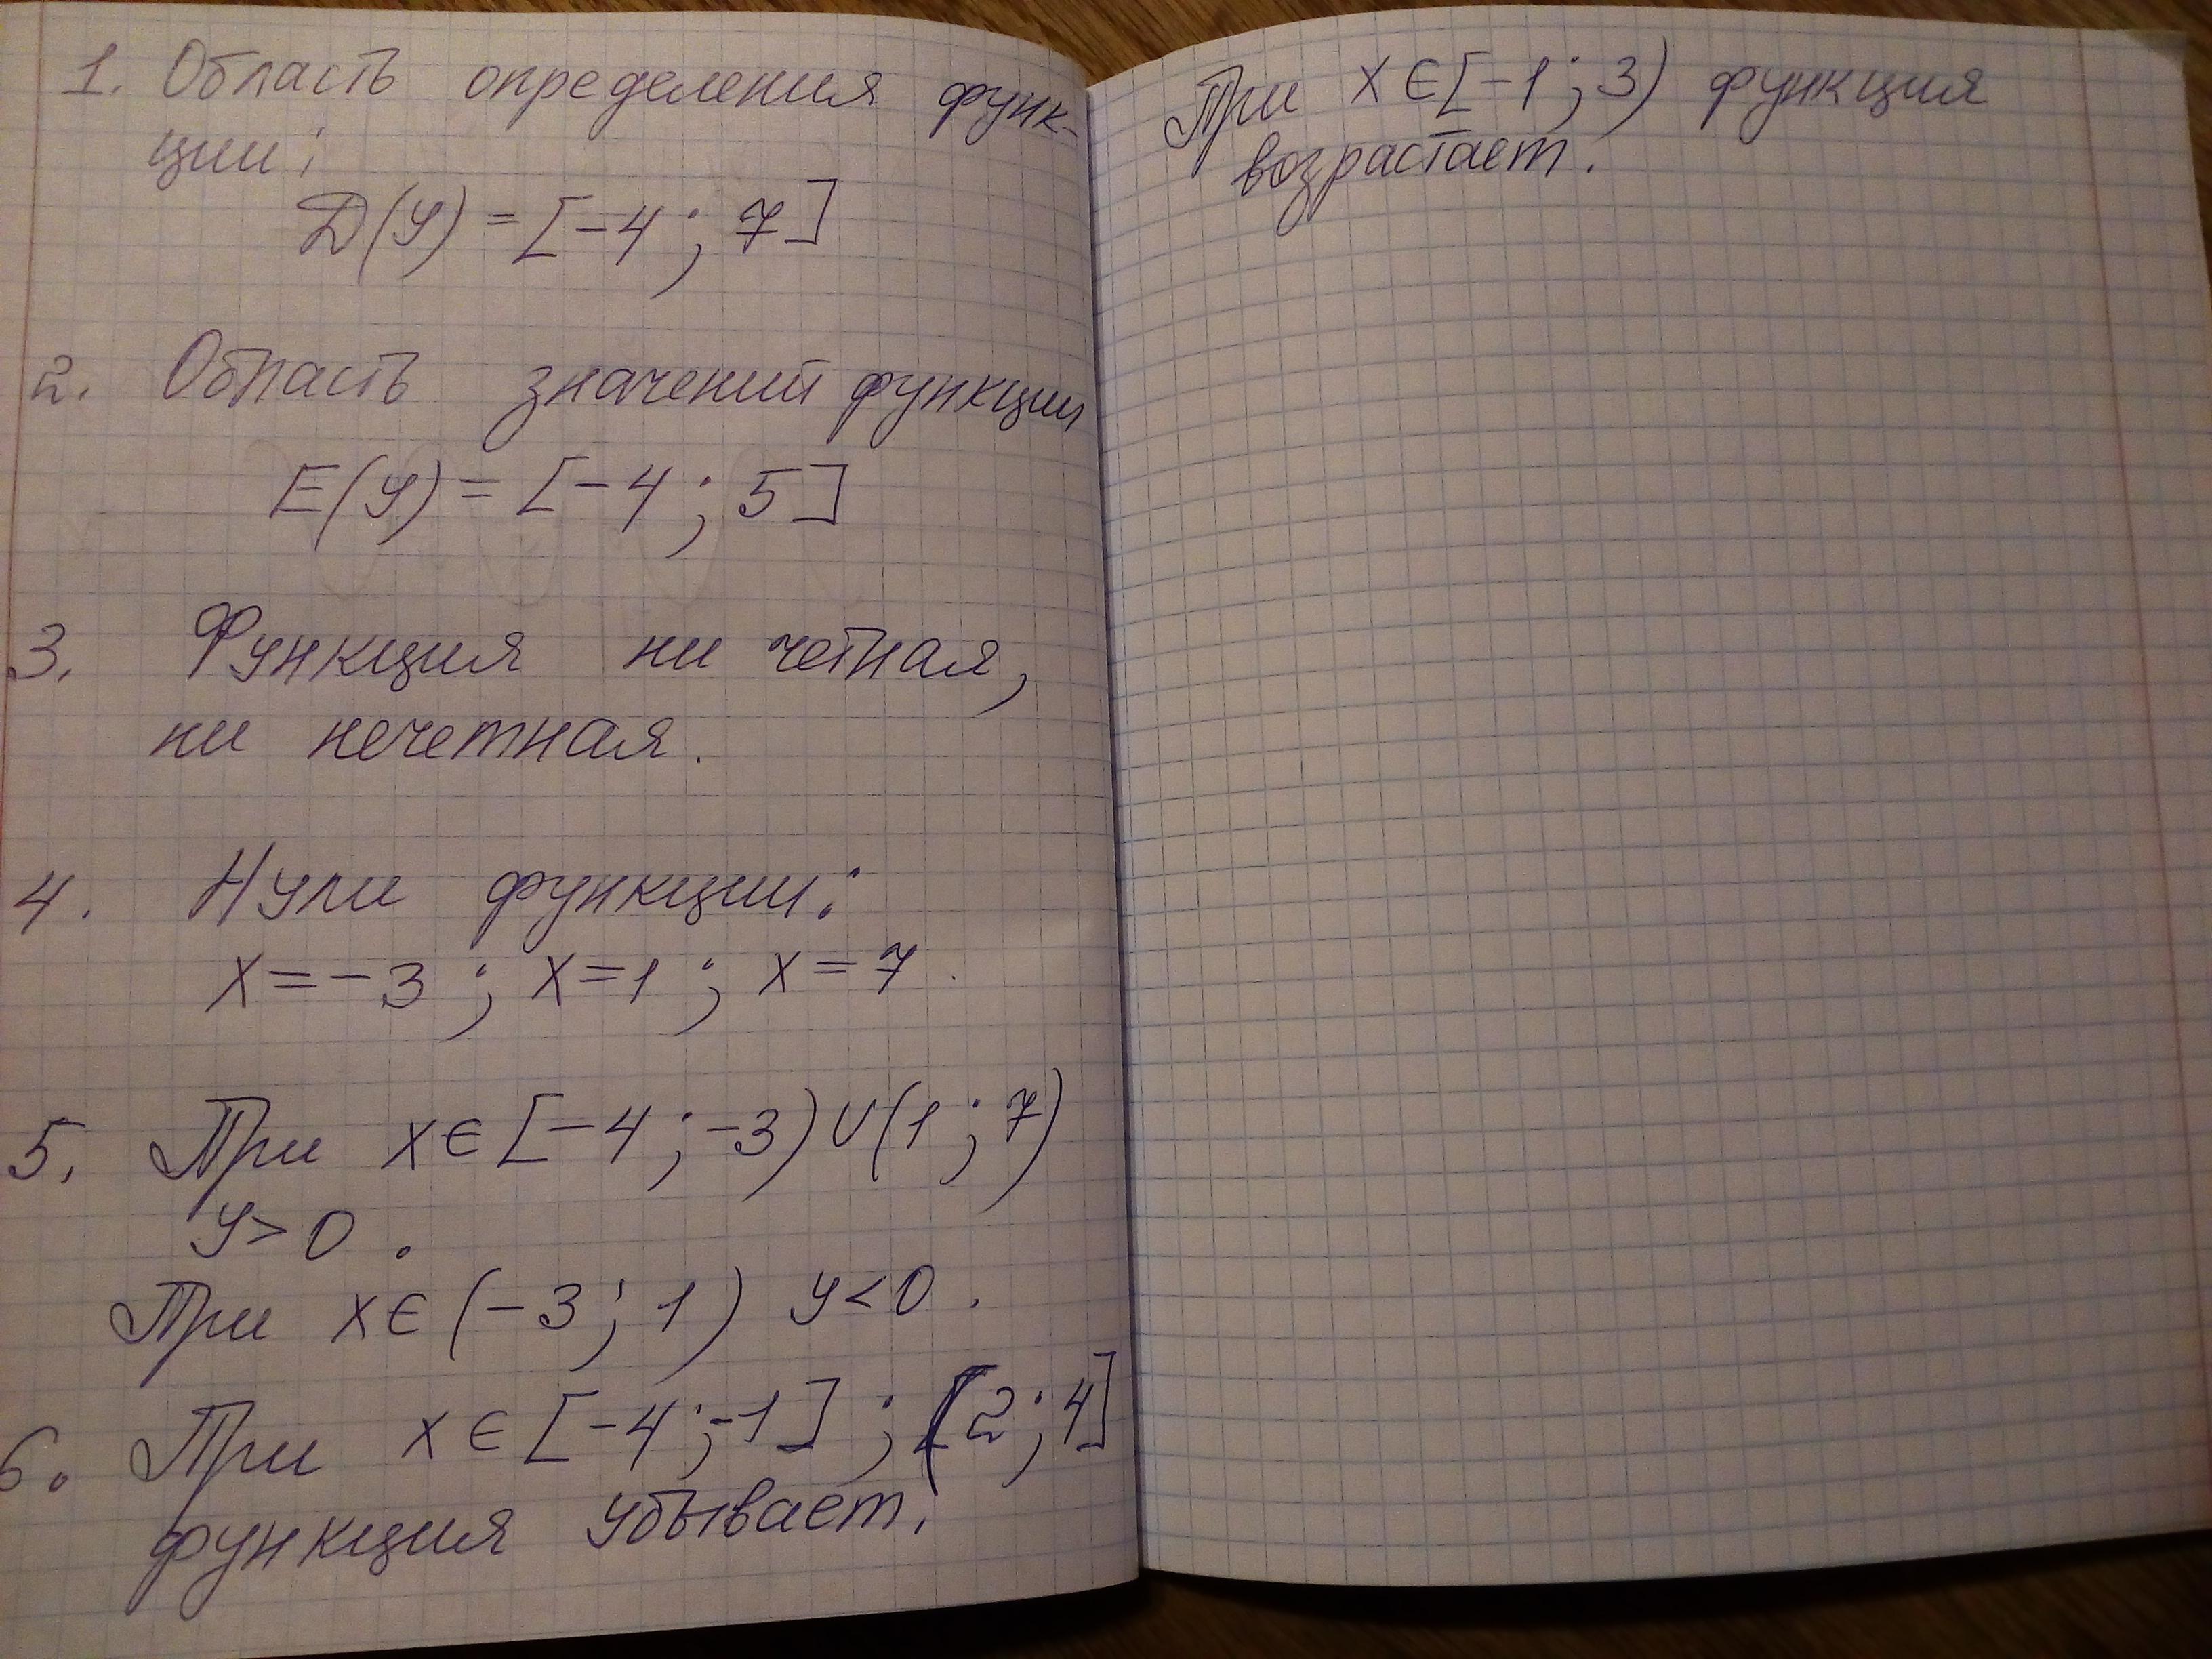 1. Область определения функ-
ции:
D(y) = [-4; 7]
2. Область значений функции
E(y) = [-4; 5]
3. Функция ни четная,
ни нечетная.
4. Нули функции:
x=-3; x=1; x=7.
5. При x∈[-4;-3)∪(1;7)
y>0.
При x∈(-3;1) y<0.
6. При x∈[-4;-1]; [2;4]
функция убывает.
При x∈[-1;3) функция
возрастает.